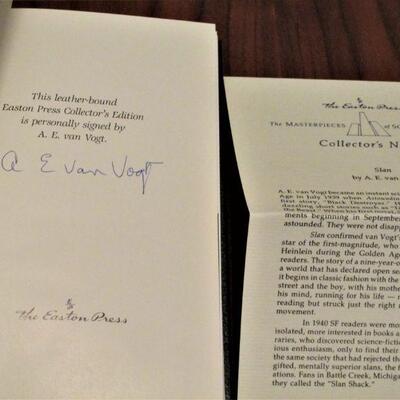 This leather-bound
Easton Press Collector's Edition
is personally signed by
A. E. van Vogt.
A E van Vogt
the Easton Press
the Easton Press
THE MASTERPIECES OF SC
Collector's N
Slan
by A. E. van
A. E. van Vogt became an instant sci
Age in July 1939 when Astoundin
first story, "Black Destroyer."
dazzling short stories such as
the Beast." When his first novel,
ments beginning in September
astounded. They were not disapp
Slan confirmed van Vogt's
star of the first-magnitude, who
Heinlein during the Golden Age
readers. The story of a nine-year-o
a world that has declared open se
it begins in classic fashion with the
street and the boy, with his moth
his mind, running for his life — n
reading but struck just the right i
movement.
In 1940 SF readers were mo
isolated, more interested in books a
raries, who discovered science-fiction
ious enthusiasm, only to find their
the same society that had rejected th
gifted, mentally superior slans, the f
ations. Fans in Battle Creek, Michigan
they called the "Slan Shack."